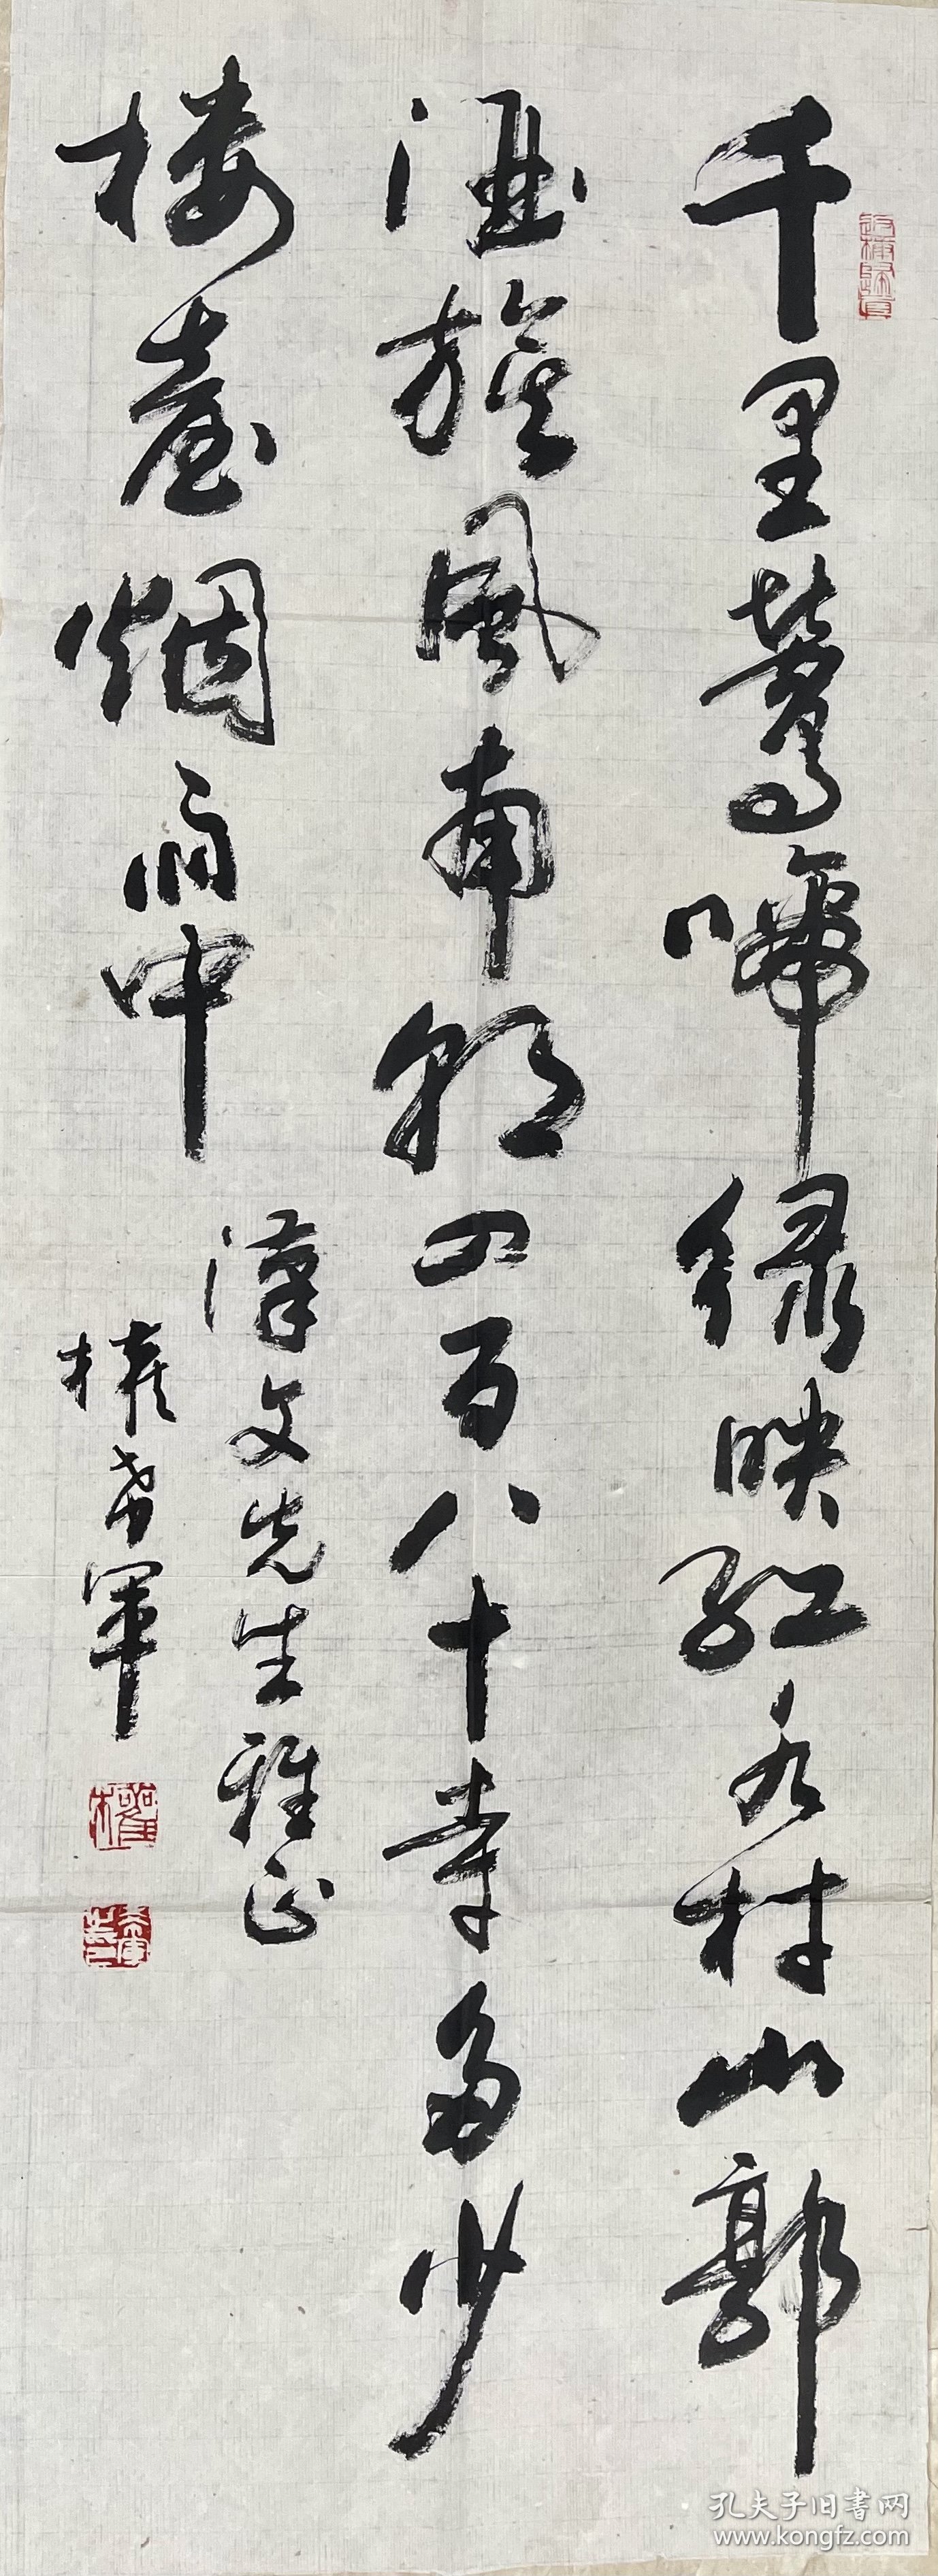 千里鶯啼绿映红水村山郭
酒旗風南朝四百八十寺多少
楼臺烟雨中
漢文先生雅正
權希軍
孔夫子旧書网
www.kongfz.com